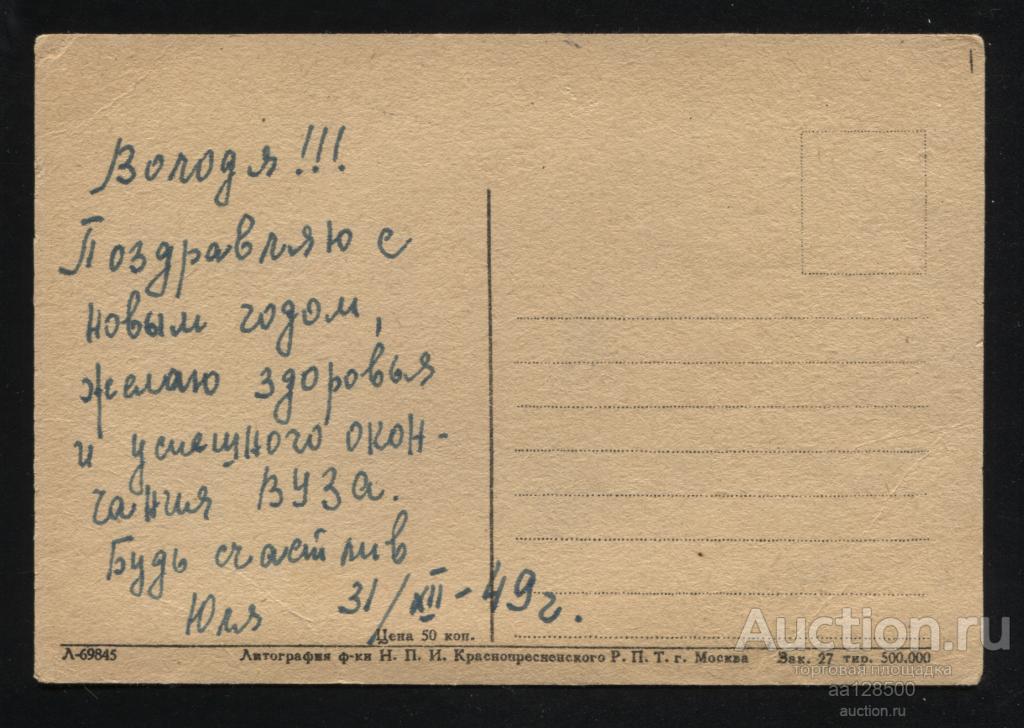 Володя!!!
Поздравляю с
новым годом,
желаю здоровья
и успешного окон-
чания ВУЗа.
Будь счастлив
Юля 31/XII-49г.
Цена 50 коп.
Л-69845 Литография ф-ки Н. П. И. Краснопресненского Р. П. Т. г. Москва Зак. 27 тир. 500.000
Auction.ru
торговая площадка
aa128500
auction.ru